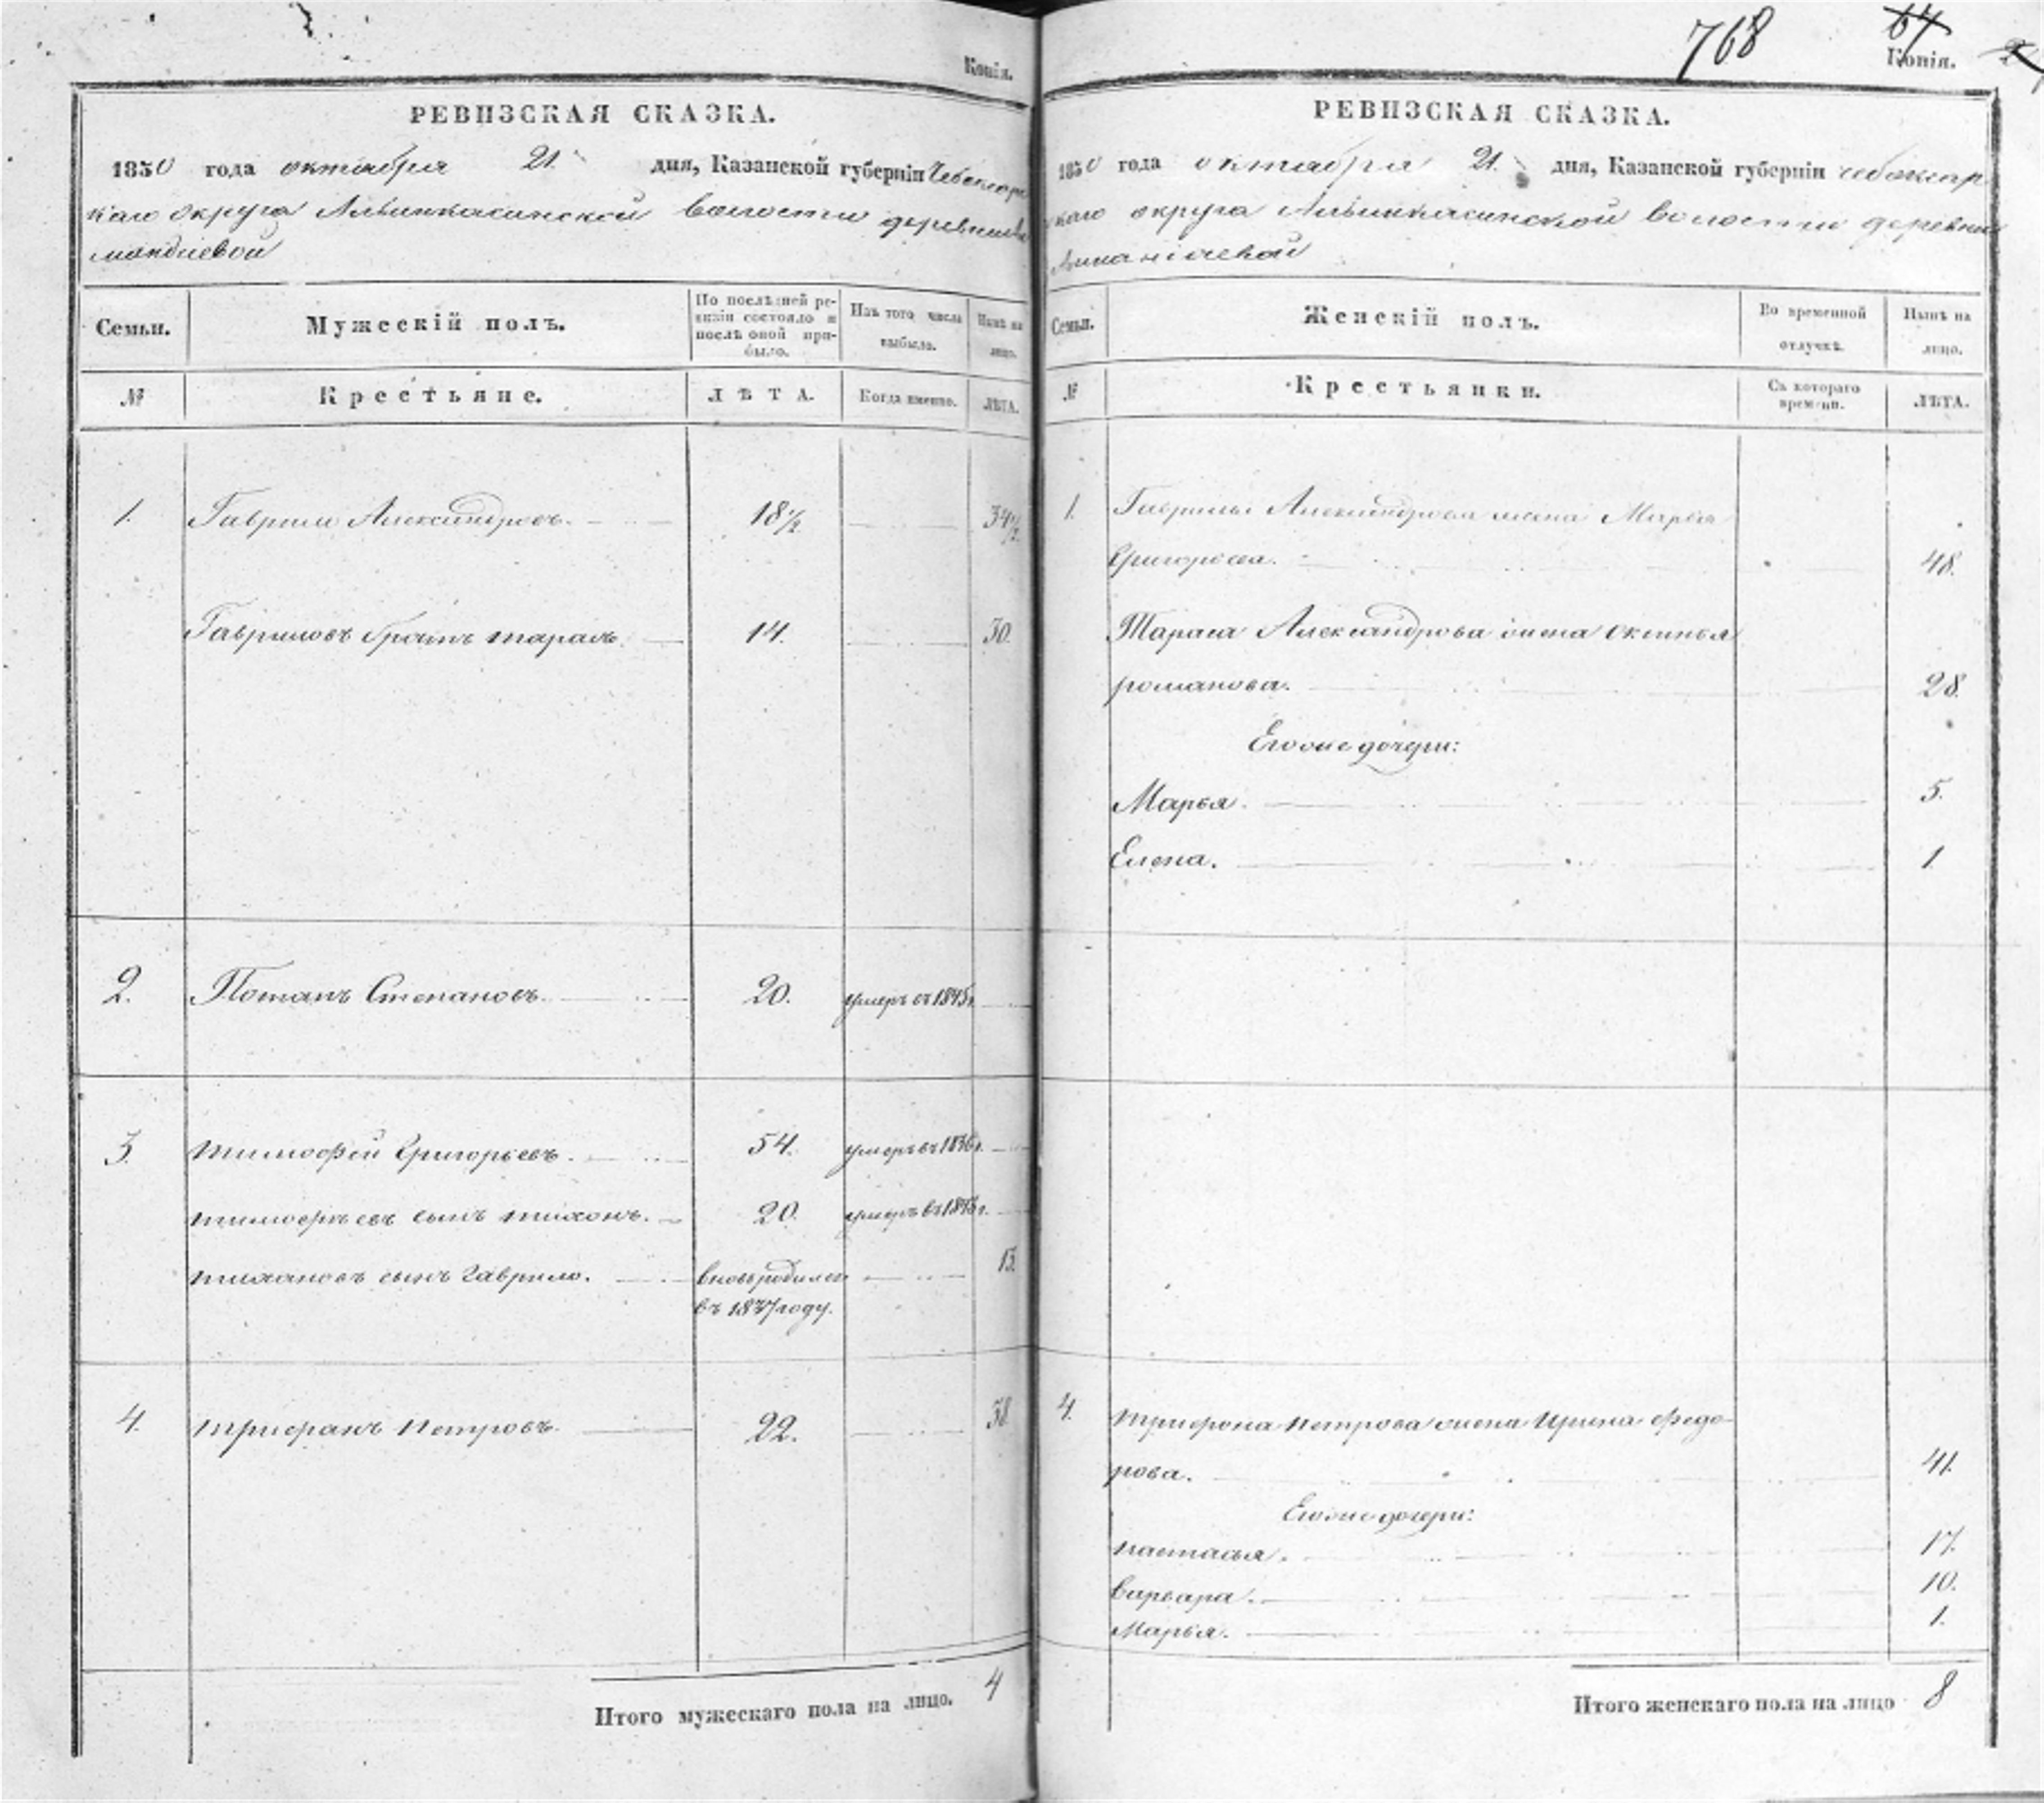 Копія.
РЕВИЗСКАЯ СКАЗКА.
1850 года октября 21 дня, Казанской губерніи Чебоксарс
каго округа волости деревни
Семьи.
Мужескій полъ.
По послѣдней ре-
визіи состояло и
послѣ оной при-
было.
Изъ того числа
выбыло.
Нынѣ на
лицо.
№
Крестьяне.
ЛѢТА.
Когда именно.
ЛѢТА.
1. Гаврила Александровъ. 18 1/2. 34 1/2.
Гавриловъ братъ тарасъ. 14. 30.
2. Потапъ Степановъ. 20. умеръ въ 1845г.
3. тимофей Григорьевъ. 54. умеръ въ 1836г.
тимофѣевъ сынъ тихонъ. 20. умеръ въ
тихановъ сынъ Гаврило. вновь родился 13.
въ 1837 году.
4. трифанъ петровъ. 22. 38
Итого мужескаго пола на лицо. 4
768
67
Копія.
РЕВИЗСКАЯ СКАЗКА.
1850 года октября 21. дня, Казанской губерніи чебоксар
каго округа волости деревни
Семьи.
Женскій полъ.
Во временной
отлучкѣ.
Нынѣ на
лицо.
№
Крестьянки.
Съ котораго
времени.
ЛѢТА.
1. Гаврилы Александрова жена Марья
Григорьева. 48.
Тараса Александрова жена Оксинья
романова. 28.
Его же дочери:
Марья. 5.
Елена. 1
4. трифона петрова жена Ирина федо
рова. 41.
Его же дочери:
настасья. 17.
варвара. 10.
Марья. 1.
Итого женскаго пола на лицо 8